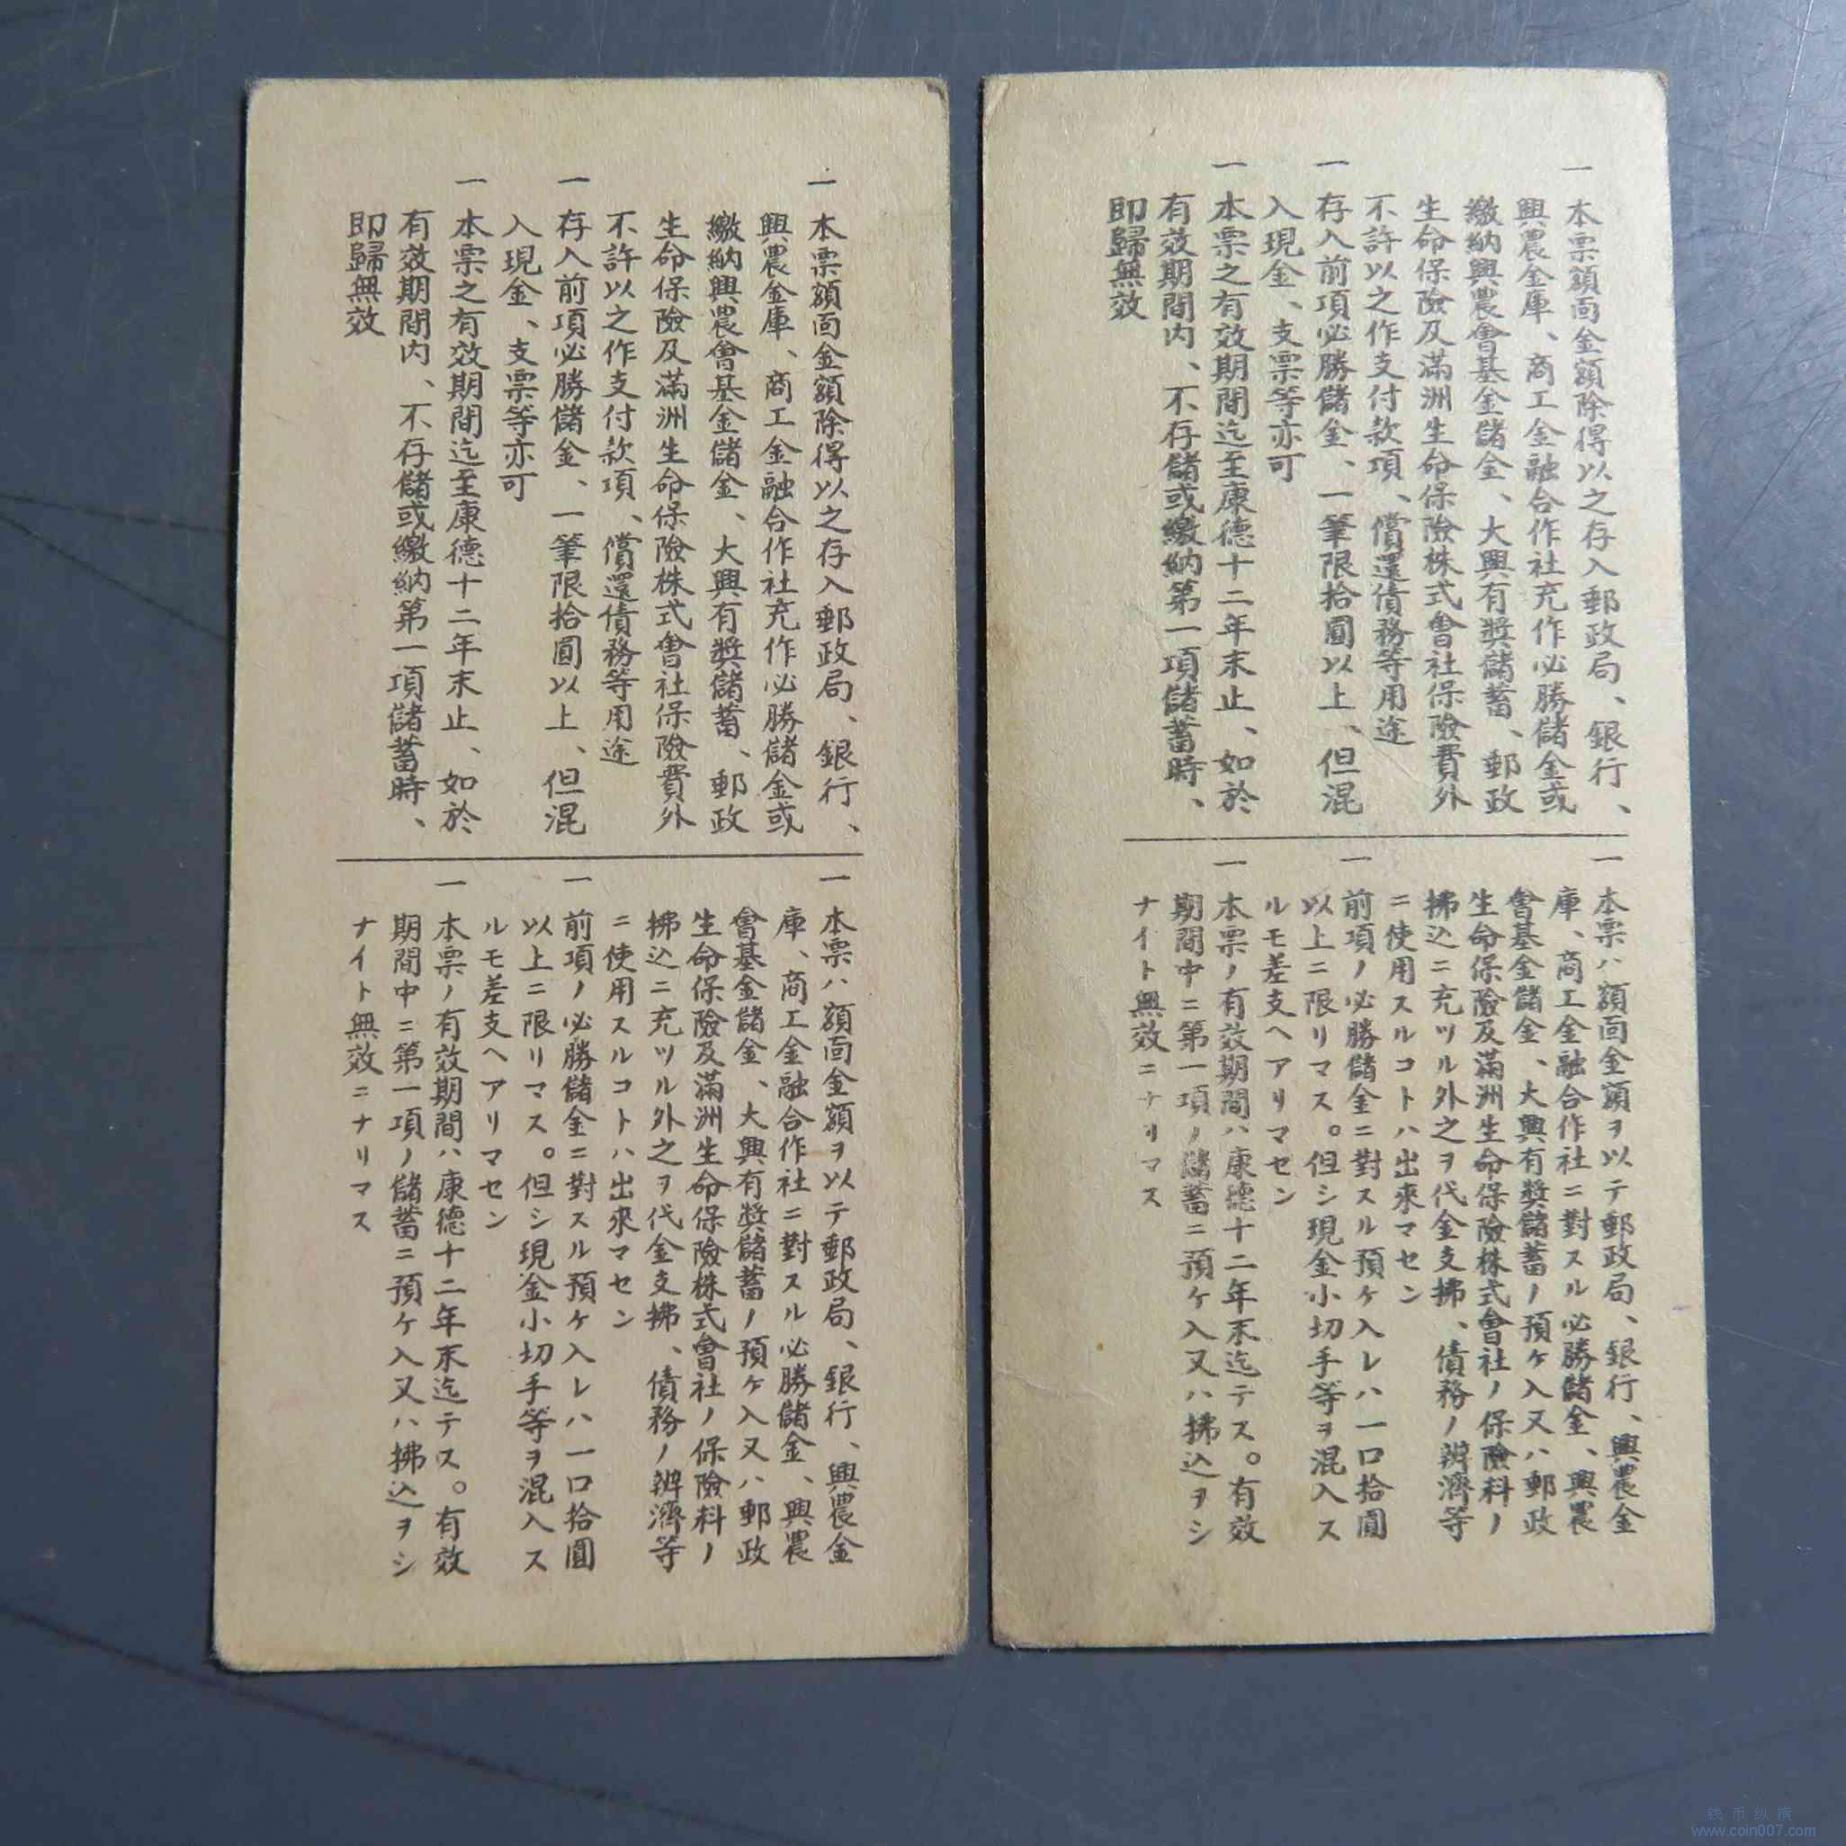 一 本票額面金額除得以之存入郵政局、銀行、
興農金庫、商工金融合作社充作必勝儲金或
繳納興農會基金儲金、大興有獎儲蓄、郵政
生命保險及滿洲生命保險株式會社保險費外
不許以之作支付款項、償還債務等用途
一 存入前項必勝儲金、一筆限拾圓以上、但混
入現金、支票等亦可
一 本票之有效期間迄至康德十二年末止、如於
有效期間內、不存儲或繳納第一項儲蓄時、
即歸無效
一 本票ハ額面金額ヲ以テ郵政局、銀行、興農金
庫、商工金融合作社ニ對スル必勝儲金、興農
會基金儲金、大興有獎儲蓄ノ預ケ入又ハ郵政
生命保險及滿洲生命保險株式會社ノ保險料ノ
拂込ニ充ツル外之ヲ代金支拂、債務ノ辨濟等
ニ使用スルコトハ出來マセン
一 前項ノ必勝儲金ニ對スル預ケ入レハ一口拾圓
以上ニ限リマス。但シ現金小切手等ヲ混入ス
ルモ差支ヘアリマセン
一 本票ノ有效期間ハ康德十二年末迄テス。有效
期間中ニ第一項ノ儲蓄ニ預ケ入又ハ拂込ヲシ
ナイト無效ニナリマス
一 本票額面金額除得以之存入郵政局、銀行、
興農金庫、商工金融合作社充作必勝儲金或
繳納興農會基金儲金、大興有獎儲蓄、郵政
生命保險及滿洲生命保險株式會社保險費外
不許以之作支付款項、償還債務等用途
一 存入前項必勝儲金、一筆限拾圓以上、但混
入現金、支票等亦可
一 本票之有效期間迄至康德十二年末止、如於
有效期間內、不存儲或繳納第一項儲蓄時、
即歸無效
一 本票ハ額面金額ヲ以テ郵政局、銀行、興農金
庫、商工金融合作社ニ對スル必勝儲金、興農
會基金儲金、大興有獎儲蓄ノ預ケ入又ハ郵政
生命保險及滿洲生命保險株式會社ノ保險料ノ
拂込ニ充ツル外之ヲ代金支拂、債務ノ辨濟等
ニ使用スルコトハ出來マセン
一 前項ノ必勝儲金ニ對スル預ケ入レハ一口拾圓
以上ニ限リマス。但シ現金小切手等ヲ混入ス
ルモ差支ヘアリマセン
一 本票ノ有效期間ハ康德十二年末迄テス。有效
期間中ニ第一項ノ儲蓄ニ預ケ入又ハ拂込ヲシ
ナイト無效ニナリマス
钱币纵横
www.coin007.com